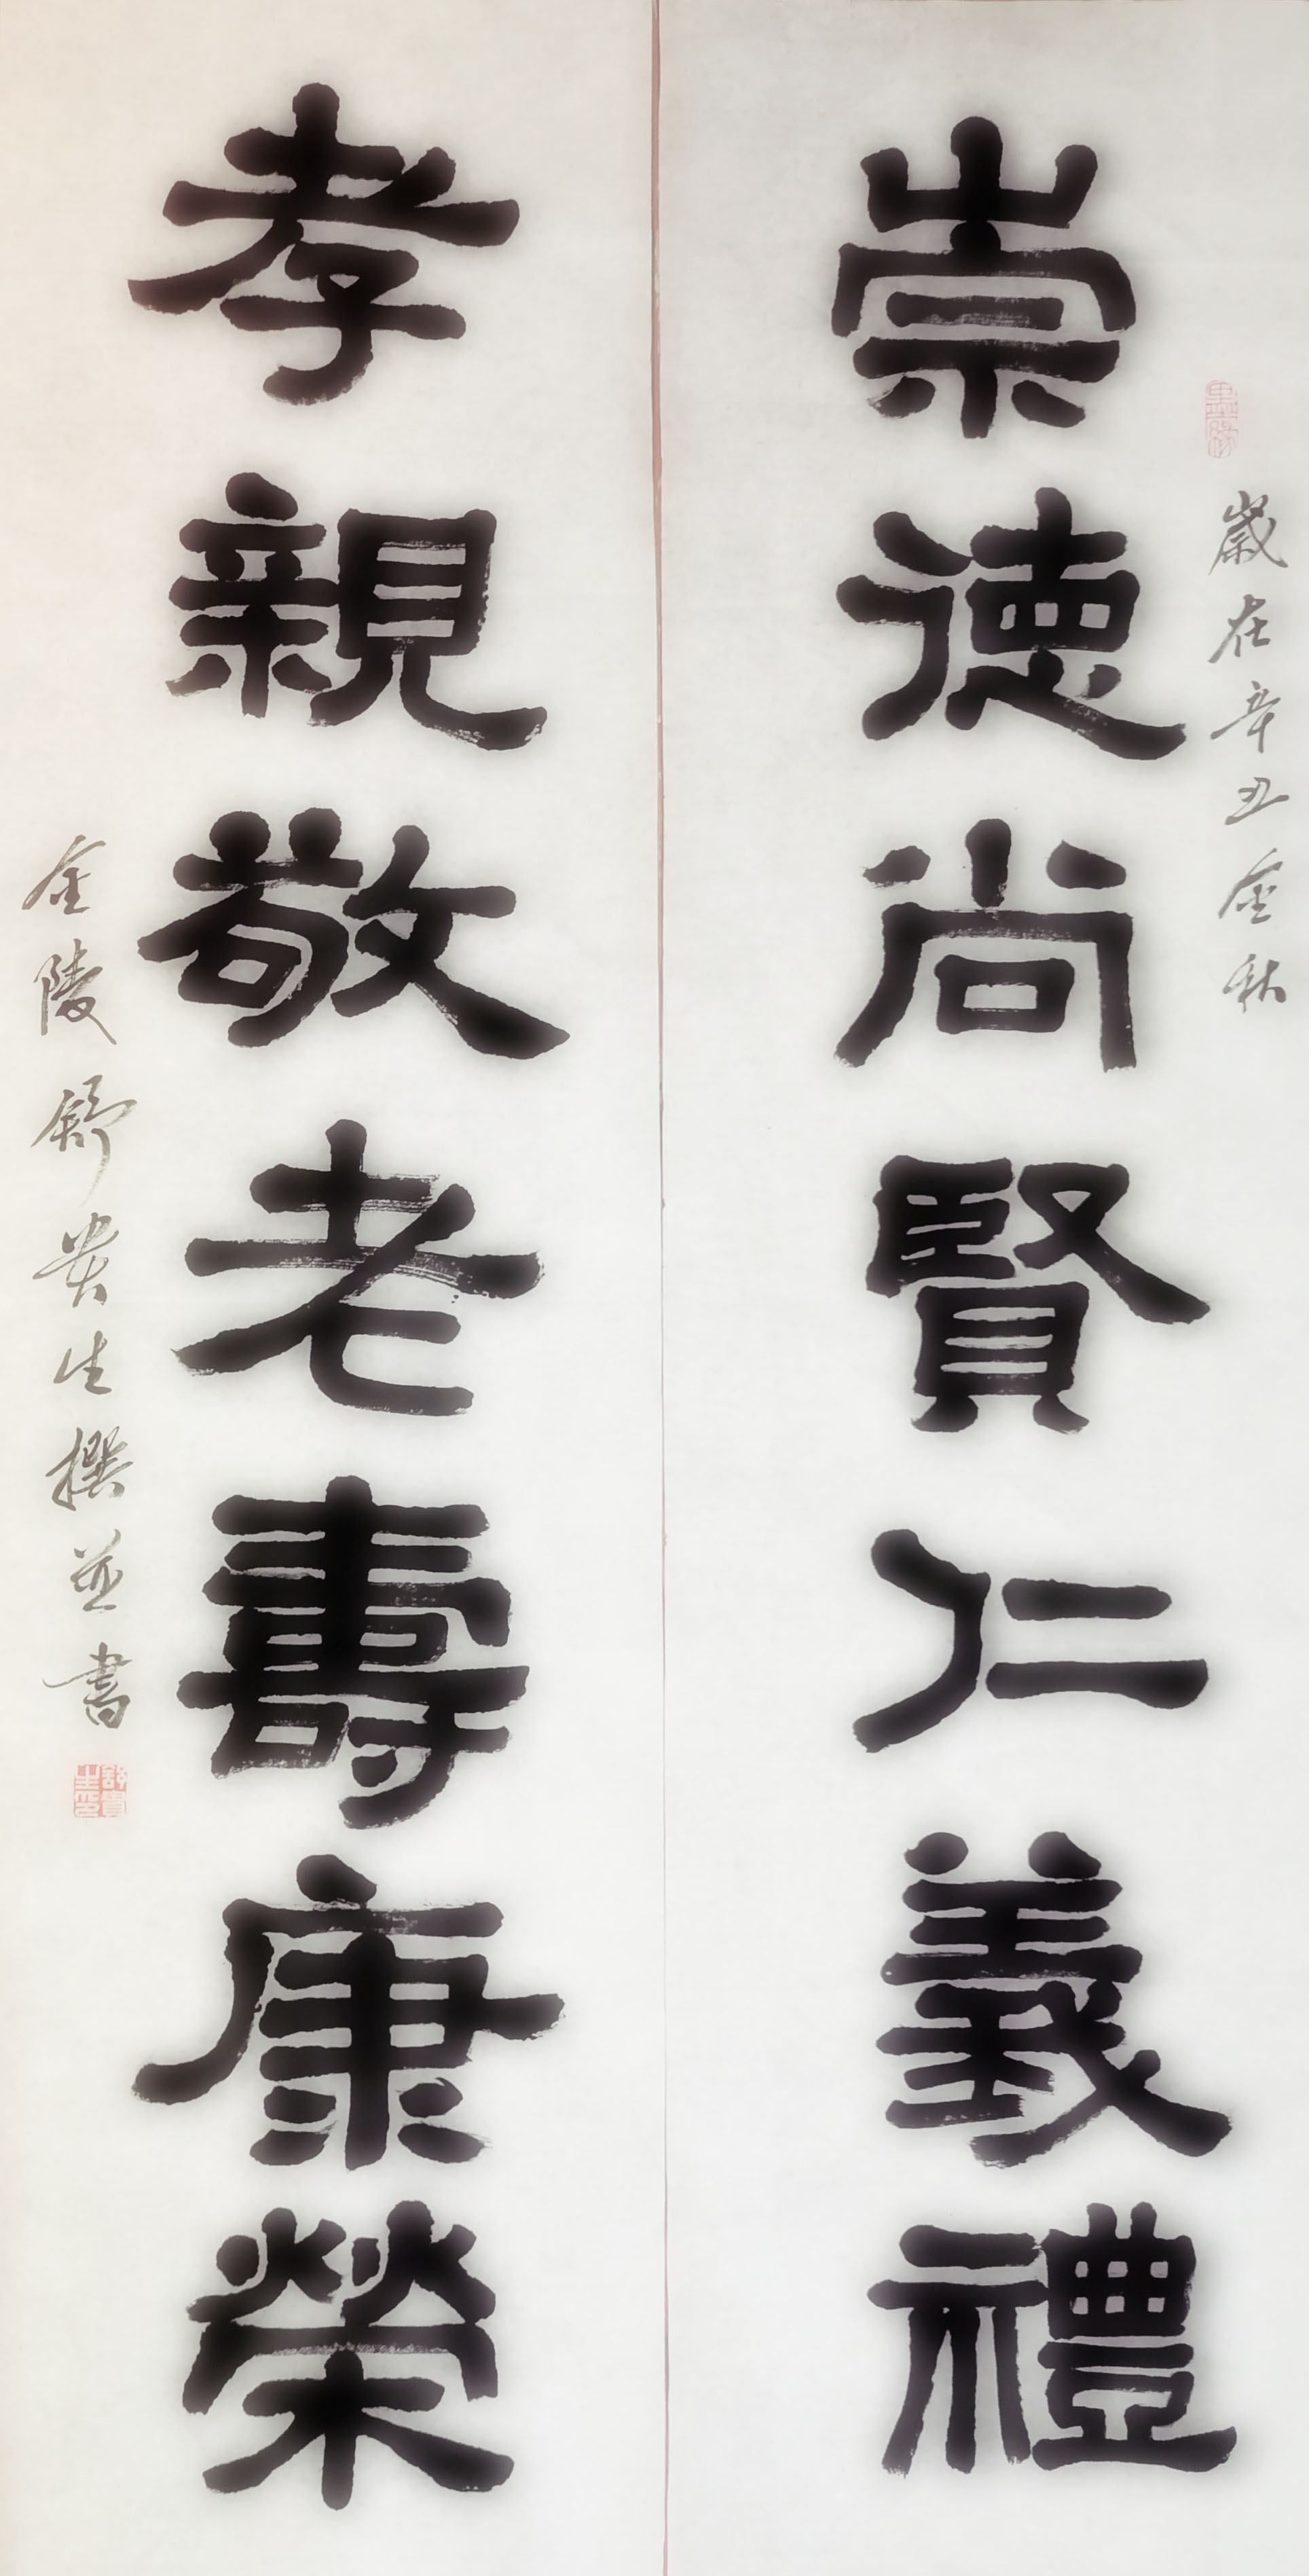 歲在辛丑金秋
崇德尚賢仁義禮
孝親敬老壽康榮
金陵舒貴生撰並書
舒貴生印